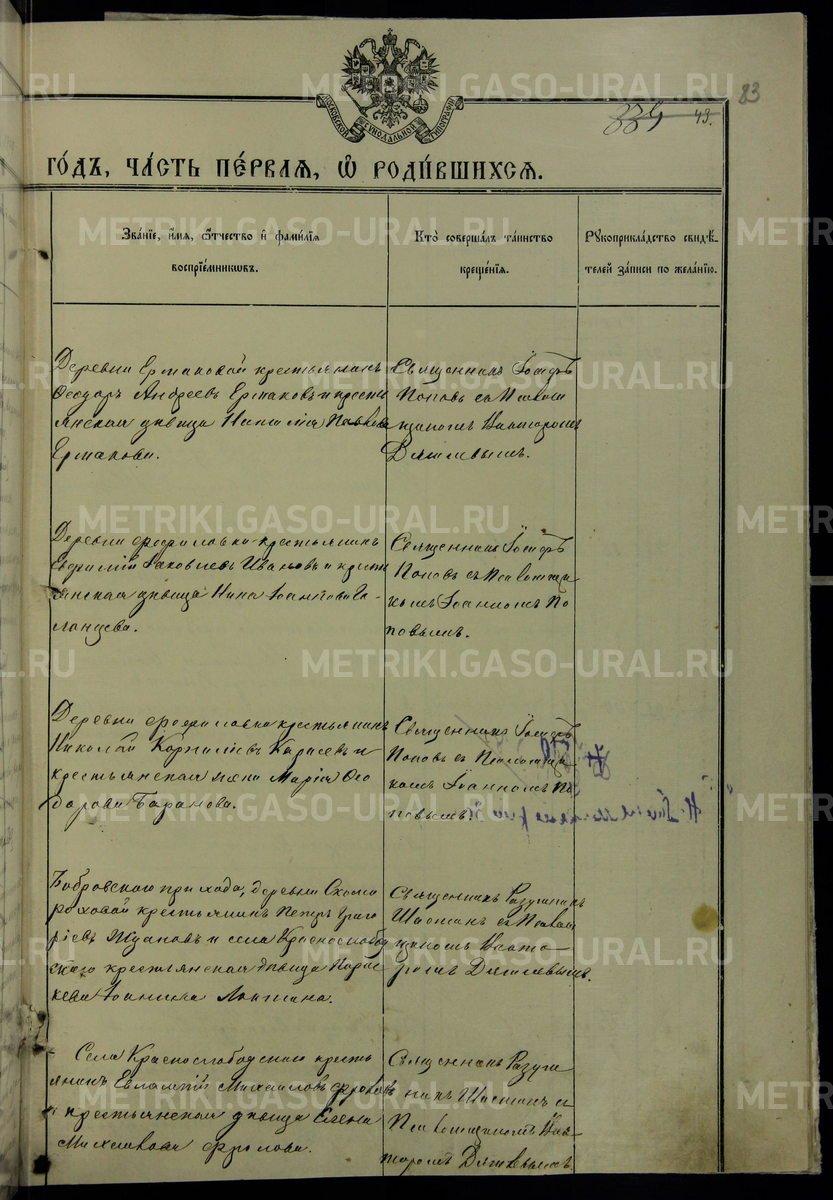 METRIKI.GASO-URAL.RU
МОСКОВСКОЙ СѴНОДАЛЬНОЙ ТИПОГРАФІИ
83
43.
ГО́ДЪ, ЧА́СТЬ ПЕ́РВАЯ, Ѽ РОДИ́ВШИХСЯ.
Зва́нїе, и҆́мѧ, ѻ҆́тчество и҆ фами́лїѧ
воспрїе́мникѡвъ.
Кто̀ соверша́лъ та́инство
креще́нїѧ.
Рꙋкоприкла́дство свидѣ́-
телей за́писи по жела́нїю.
Деревни Ермаковой крестьянинъ
Ѳеодоръ Андреевъ Ермаковъ и кресть
янская дѣвица Наталія Павлова
Ермакова.
Священникъ Іосифъ
Поповъ съ Псалом
щикомъ
Деревни Фроловки крестьянинъ
Евфимій Іаковлевъ Ивановъ и кресть
янская дѣвица Нина Іоаннова
Священникъ Іосифъ
Поповъ съ Псаломщи
комъ Іоанномъ По
повымъ.
Деревни крестьянинъ
Николай Корнилїевъ Карасевъ и
крестьянская жена Марія Ѳео
дорова Баранова.
Священникъ Іосифъ
Поповъ съ Псаломщи
комъ Іоанномъ По
повымъ.
Бобровскаго прихода, деревни Скомо
роховой крестьянинъ Петръ Григо
рїевъ Ждановъ и села Краснослобод
скаго крестьянская дѣвица Парас
кева Іоаннова
Священникъ
съ Псалом
щикомъ
Села Краснослободскаго кресть
янинъ Евлампій Михаиловъ Фроловъ
и крестьянская дѣвица Елена
Михаилова Фролова.
Священникъ
съ
Псаломщикомъ